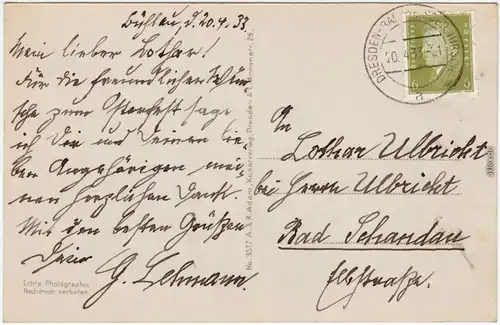 Bühlau, d. 20.4.33
Mein lieber Lothar!
Für die freundlichen Wün-
sche zum Osterfest sage
ich Dir und Deinen lie-
ben Angehörigen mei-
nen herzlichen Dank.
Mit den besten Grüßen
Dein
G. Lehmann.
Echte Photographie
Nachdruck verboten
No. 3517 A. & R. Adam, Kunstverlag, Dresden
DRESDEN-BAD
6
An
Lothar Ulbricht
bei Herrn Ulbricht
Bad Schandau
Elbstraße.